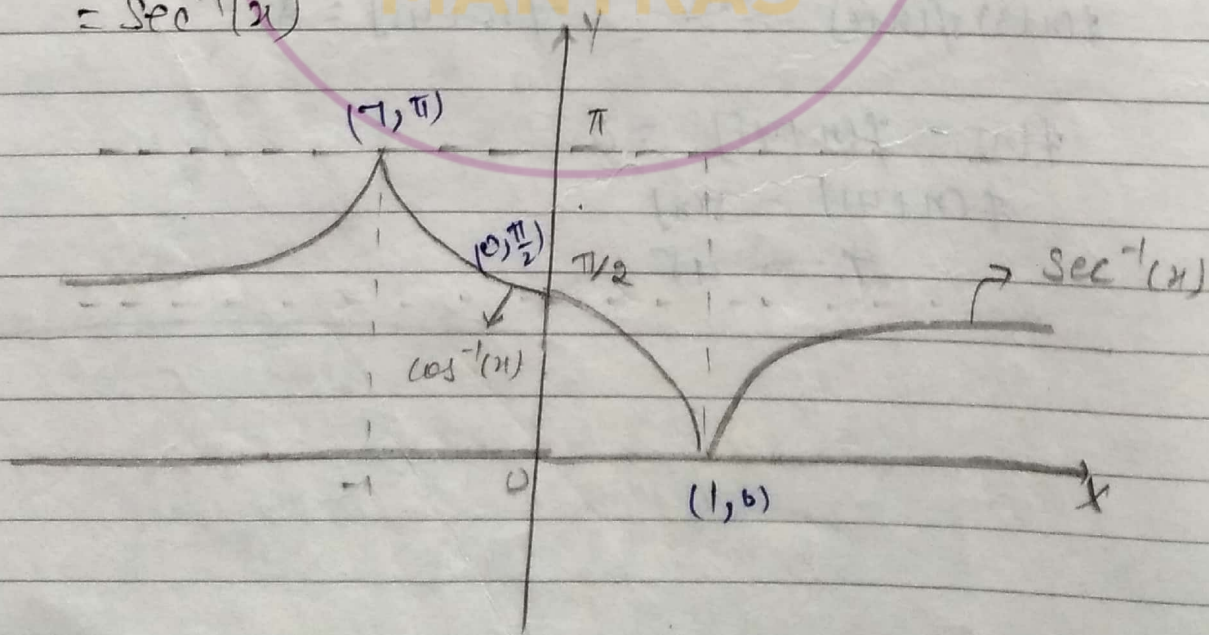 = Sec⁻¹(x)
MANTRAS
Y
(-1, π)
π
(0, π/2)
π/2
Sec⁻¹(x)
cos⁻¹(x)
-1
0
(1, 0)
X